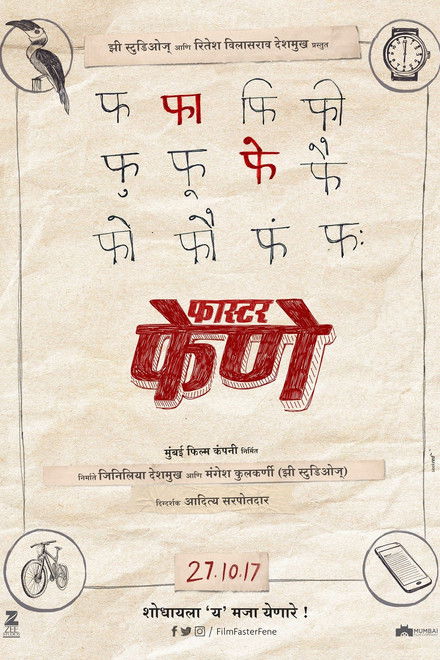 झी स्टुडिओज् आणि रितेश विलासराव देशमुख प्रस्तुत
फ फा फि फी
फु फू फे फै
फो फौ फं फः
फास्टर
फेणे
मुंबई फिल्म कंपनी निर्मित
निर्माते जिनिलिया देशमुख आणि मंगेश कुलकर्णी (झी स्टुडिओज्)
दिग्दर्शक आदित्य सरपोतदार
27.10.17
शोधायला 'य' मजा येणारे !
/ FilmFasterFene
ZEE
STUDIOS
MUMBAI